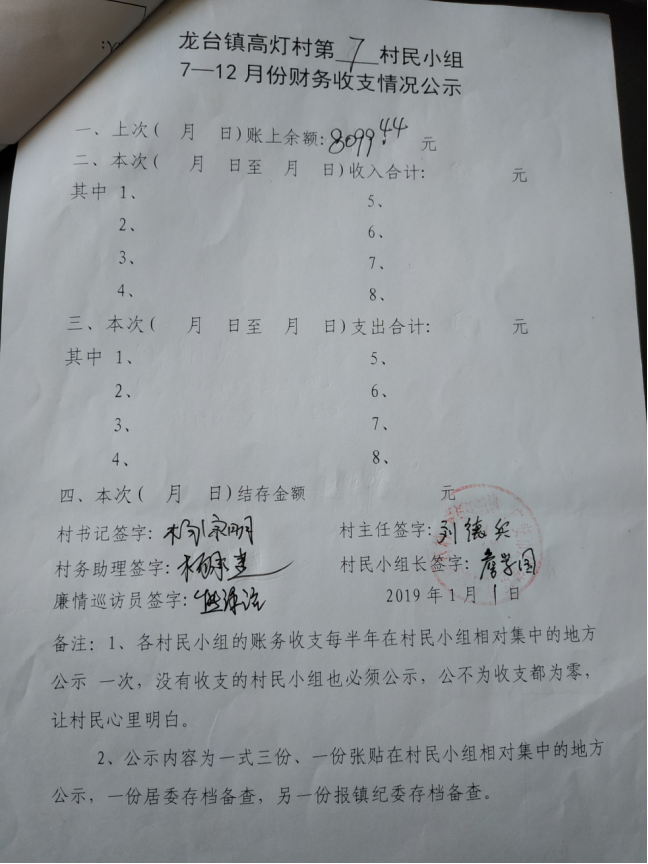 龙台镇高灯村第7村民小组
7—12月份财务收支情况公示
一、上次( 月 日)账上余额:8099.44元
二、本次( 月 日至 月 日)收入合计: 元
其中 1、 5、
2、 6、
3、 7、
4、 8、
三、本次( 月 日至 月 日)支出合计: 元
其中 1、 5、
2、 6、
3、 7、
4、 8、
四、本次( 月 日)结存金额 元
村书记签字: 村主任签字:刘德兴
村务助理签字: 村民小组长签字:
廉情巡访员签字: 2019年1月1日
备注:1、各村民小组的账务收支每半年在村民小组相对集中的地方
公示 一次,没有收支的村民小组也必须公示,公不为收支都为零,
让村民心里明白。
2、公示内容为一式三份、一份张贴在村民小组相对集中的地方
公示,一份居委存档备查,另一份报镇纪委存档备查。